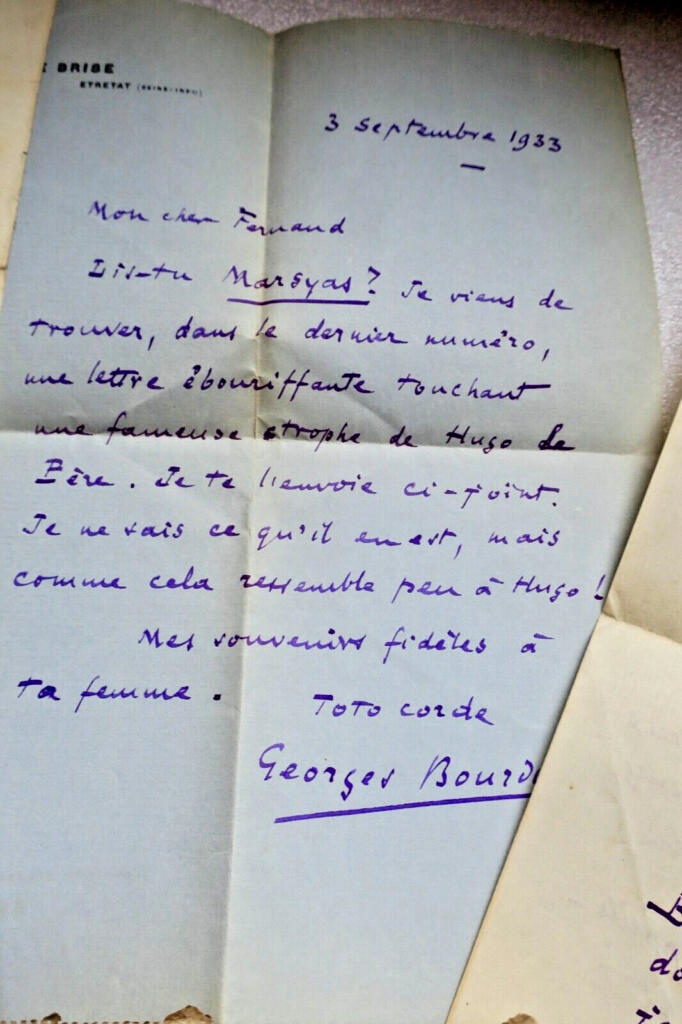 BRISE
ETRETAT (SEINE-INFRE)
3 Septembre 1933
Mon cher Fernand
Lis-tu Marsyas ? Je viens de
trouver, dans le dernier numéro,
une lettre ébouriffante touchant
une fameuse strophe de Hugo le
Père. Je te l'envoie ci-joint.
Je ne sais ce qu'il en est, mais
comme cela ressemble peu à Hugo !
Mes souvenirs fidèles à
ta femme.
Toto corde
Georges Bourd
do